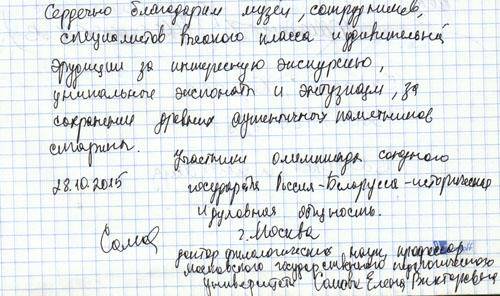 Сердечно благодарим музей, сотрудников,
специалистов высокого класса и удивительной
эрудиции за интересную экскурсию,
уникальные экспонаты и энтузиазм, за
сохранение древних аутентичных памятников
старины.
Участники олимпиады союзного
28.10.2015 государства Россия-Беларусь - историческая
и духовная общность.
г. Москва
доктор филологических наук, профессор
Московского государственного педагогического
университета Сомова Елена Викторовна